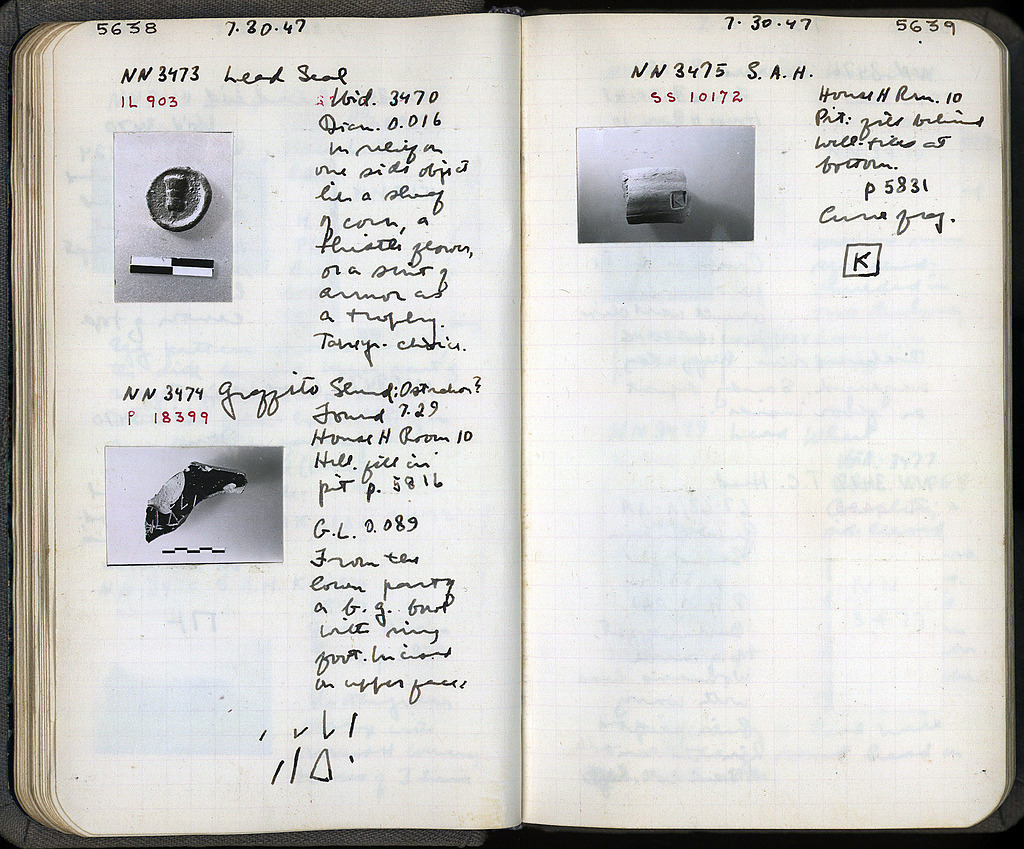 5638 7.30.47
NN 3473 Lead Seal
IL 903
Ibid. 3470
Diam. 0.016
In relief on
one side object
like a sheaf
of corn, a
thistle flower,
or a suit of
armor as
a trophy.
NN 3474 Graffito Sherd: Ostrakon?
P 18399
Found 7.29
House H Room 10
Hell. fill in
pit p. 5816
G.L. 0.089
From the
lower part of
a b.g. bowl
with ring
foot. Incised
on upper face:
7.30.47 5639
NN 3475 S.A.H.
SS 10172
House H Rm. 10
Pit: fill behind
well-tiles at
bottom.
p 5831
Curve frag.
K